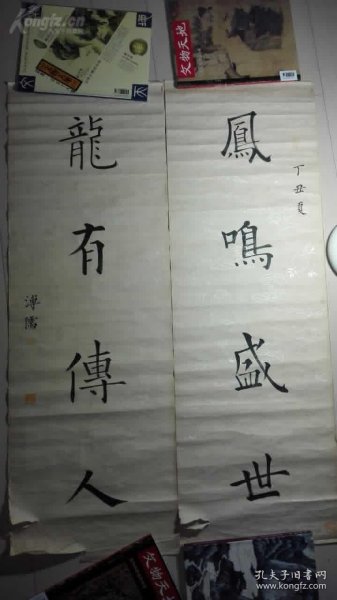 鳳鳴盛世
丁丑夏
龍有傳人
溥儒
文物天地
文物天地
Kongfz.cn
孔夫子旧书网